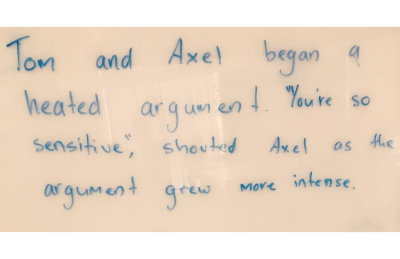 Tom and Axel began a
heated argument. "You're so
sensitive", shouted Axel as the
argument grew more intense.